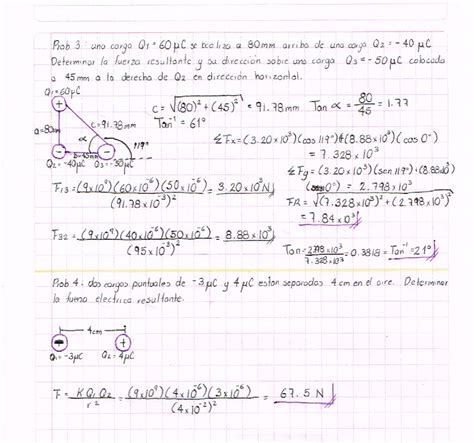 Prob 3: una carga Q1=60μC se localiza a 80mm arriba de una carga Q2=-40 μC
Determinar la fuerza resultante y su dirección sobre una carga Q3=-50μC colocada
a 45mm a la derecha de Q2 en dirección horizontal.
Q1=60μC
a=80mm
c=91.78mm
α
119°
b=45mm
Q2=-40μC Q3=-30μC
c=√(80)²+(45)² = 91.78mm. Tan α = 80/45 = 1.77
Tan⁻¹=61°
ΣFx=(3.20x10³)(cos 119°)+(8.88x10³)(cos 0°)
= 7.328x10³
ΣFy=(3.20x10³)(sen 119°)+(8.88x10³)
(sen 0°) = 2.798x10³
F13=(9x10⁹)(60x10⁻⁶)(50x10⁻⁶)/(91.78x10⁻³)² = 3.20x10³N
FR=√(7.328x10³)²+(2.798x10³)²
= 7.84x10³
F32=(9x10⁹)(40x10⁻⁶)(50x10⁻⁶)/(45x10⁻³)² = 8.88x10³
Tan=2.798x10³/7.328x10³=0.3818=Tan⁻¹=21°
Prob 4: dos cargas puntuales de -3μC y 4μC estan separadas 4cm en el aire. Determinar
la fuerza electrica resultante.
4cm
Q1=-3μC Q2=4μC
F=KQ1Q2/r²=(9x10⁹)(4x10⁻⁶)(3x10⁻⁶)/(4x10⁻²)² = 67.5 N